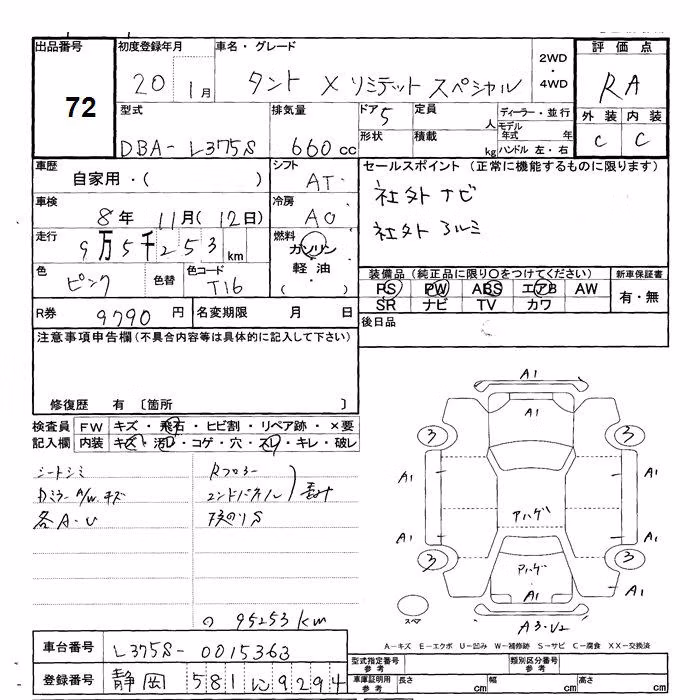 出品番号
72
初度登録年月
20 1月
車名・グレード
タント X リミテット スペシャル
2WD
・
4WD
評価点
RA
外装 内装
C C
型式
DBA- L375S
排気量
660 cc
ドア 5
形状
定員
人
積載
kg
ディーラー・並行
モデル年式 年
ハンドル 左・右
車歴
自家用・( )
シフト
AT
セールスポイント (正常に機能するものに限ります)
社外 ナビ
社外 アルミ
車検
8年 11月(12日)
冷房
AC
走行
9万5千253 km
燃料
ガソリン
軽油
( )
色
ピンク
色替
色コード
T16
装備品 (純正品に限り○をつけてください)
PS PW ABS エアB AW
SR ナビ TV カワ
新車保証書
有・無
R券 9790 円
名変期限 月 日
後日品
注意事項申告欄 (不具合内容等は具体的に記入して下さい)
修復歴 有 〔箇所 〕
検査員記入欄
FW キズ・飛石・ヒビ割・リペア跡・×要
内装 キズ・汚レ・コゲ・穴・スレ・キレ・破レ
シートシミ
Dミラー A/W キズ
各A・U
Rフロアー
エンドパネル
95253 km
A1
A1
3
3
A1
A1
アハゲ
A1
A1
3
3
アハゲ
A1
A1
A3・U2
スペア
A-キズ E-エクボ U-凹み W-補修跡 S-サビ C-腐食 XX-交換済
車台番号 L375S- 0015363
登録番号 静岡 581 い 9294
型式指定番号
参考
類別区分番号
参考
車庫証明用
参考
長さ cm
幅 cm
高さ cm